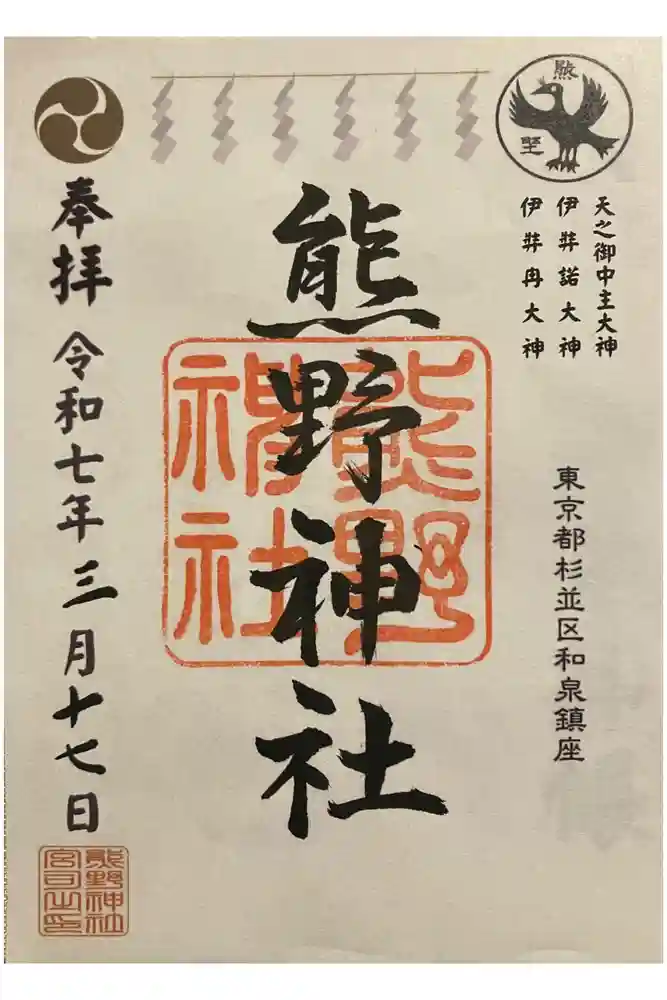 熊
野
天之御中主大神
伊弉諾大神
伊弉冉大神
東京都杉並区和泉鎮座
熊野神社
熊野
神社
奉拝 令和七年三月十七日
熊野神社
宮司之印